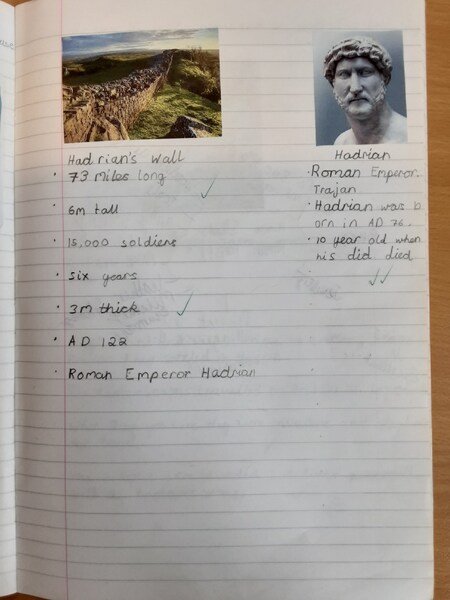 Hadrian's Wall
· 73 miles long
· 6m tall
· 15,000 soldiers
· six years
· 3m thick
· AD 122
· Roman Emperor Hadrian
Hadrian
· Roman Emperor.
Trajan
· Hadrian was b
orn in AD 76.
· 10 year old when
his did died